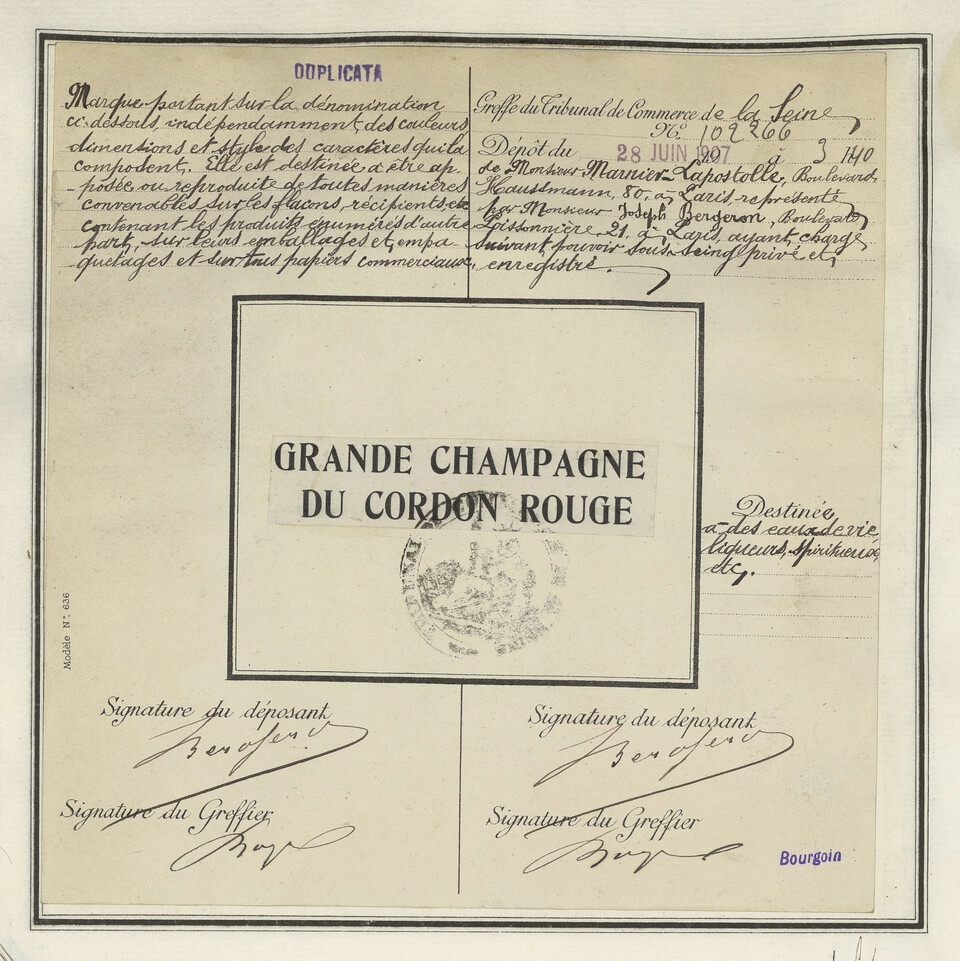 DUPLICATA
Marque portant sur la dénomination
ci-dessous, indépendamment des couleurs,
dimensions et style des caractères qui la
composent. Elle est destinée à être ap-
-posée ou reproduite de toutes manières
convenables sur les flacons, récipients, etc
contenant les produits énumérés d'autre
part, sur leurs emballages et empa-
-quetages et sur tous papiers commerciaux.
Greffe du Tribunal de Commerce de la Seine
N° 109266
Dépôt du 28 JUIN 1907 à 3 h 40
de Monsieur Marnier-Lapostolle, Boulevard
Haussmann, 80, à Paris, représenté
par Monsieur Joseph Bergeron, Boulevard
Poissonnière, 21, à Paris, ayant charge
suivant pouvoir sous-seing privé et
enregistré.
GRANDE CHAMPAGNE
DU CORDON ROUGE
Destinée
à des eaux de vie,
liqueurs, spiritueux,
etc.
Modèle N° 636
Signature du déposant
Signature du Greffier
Signature du déposant
Signature du Greffier
Bourgoin